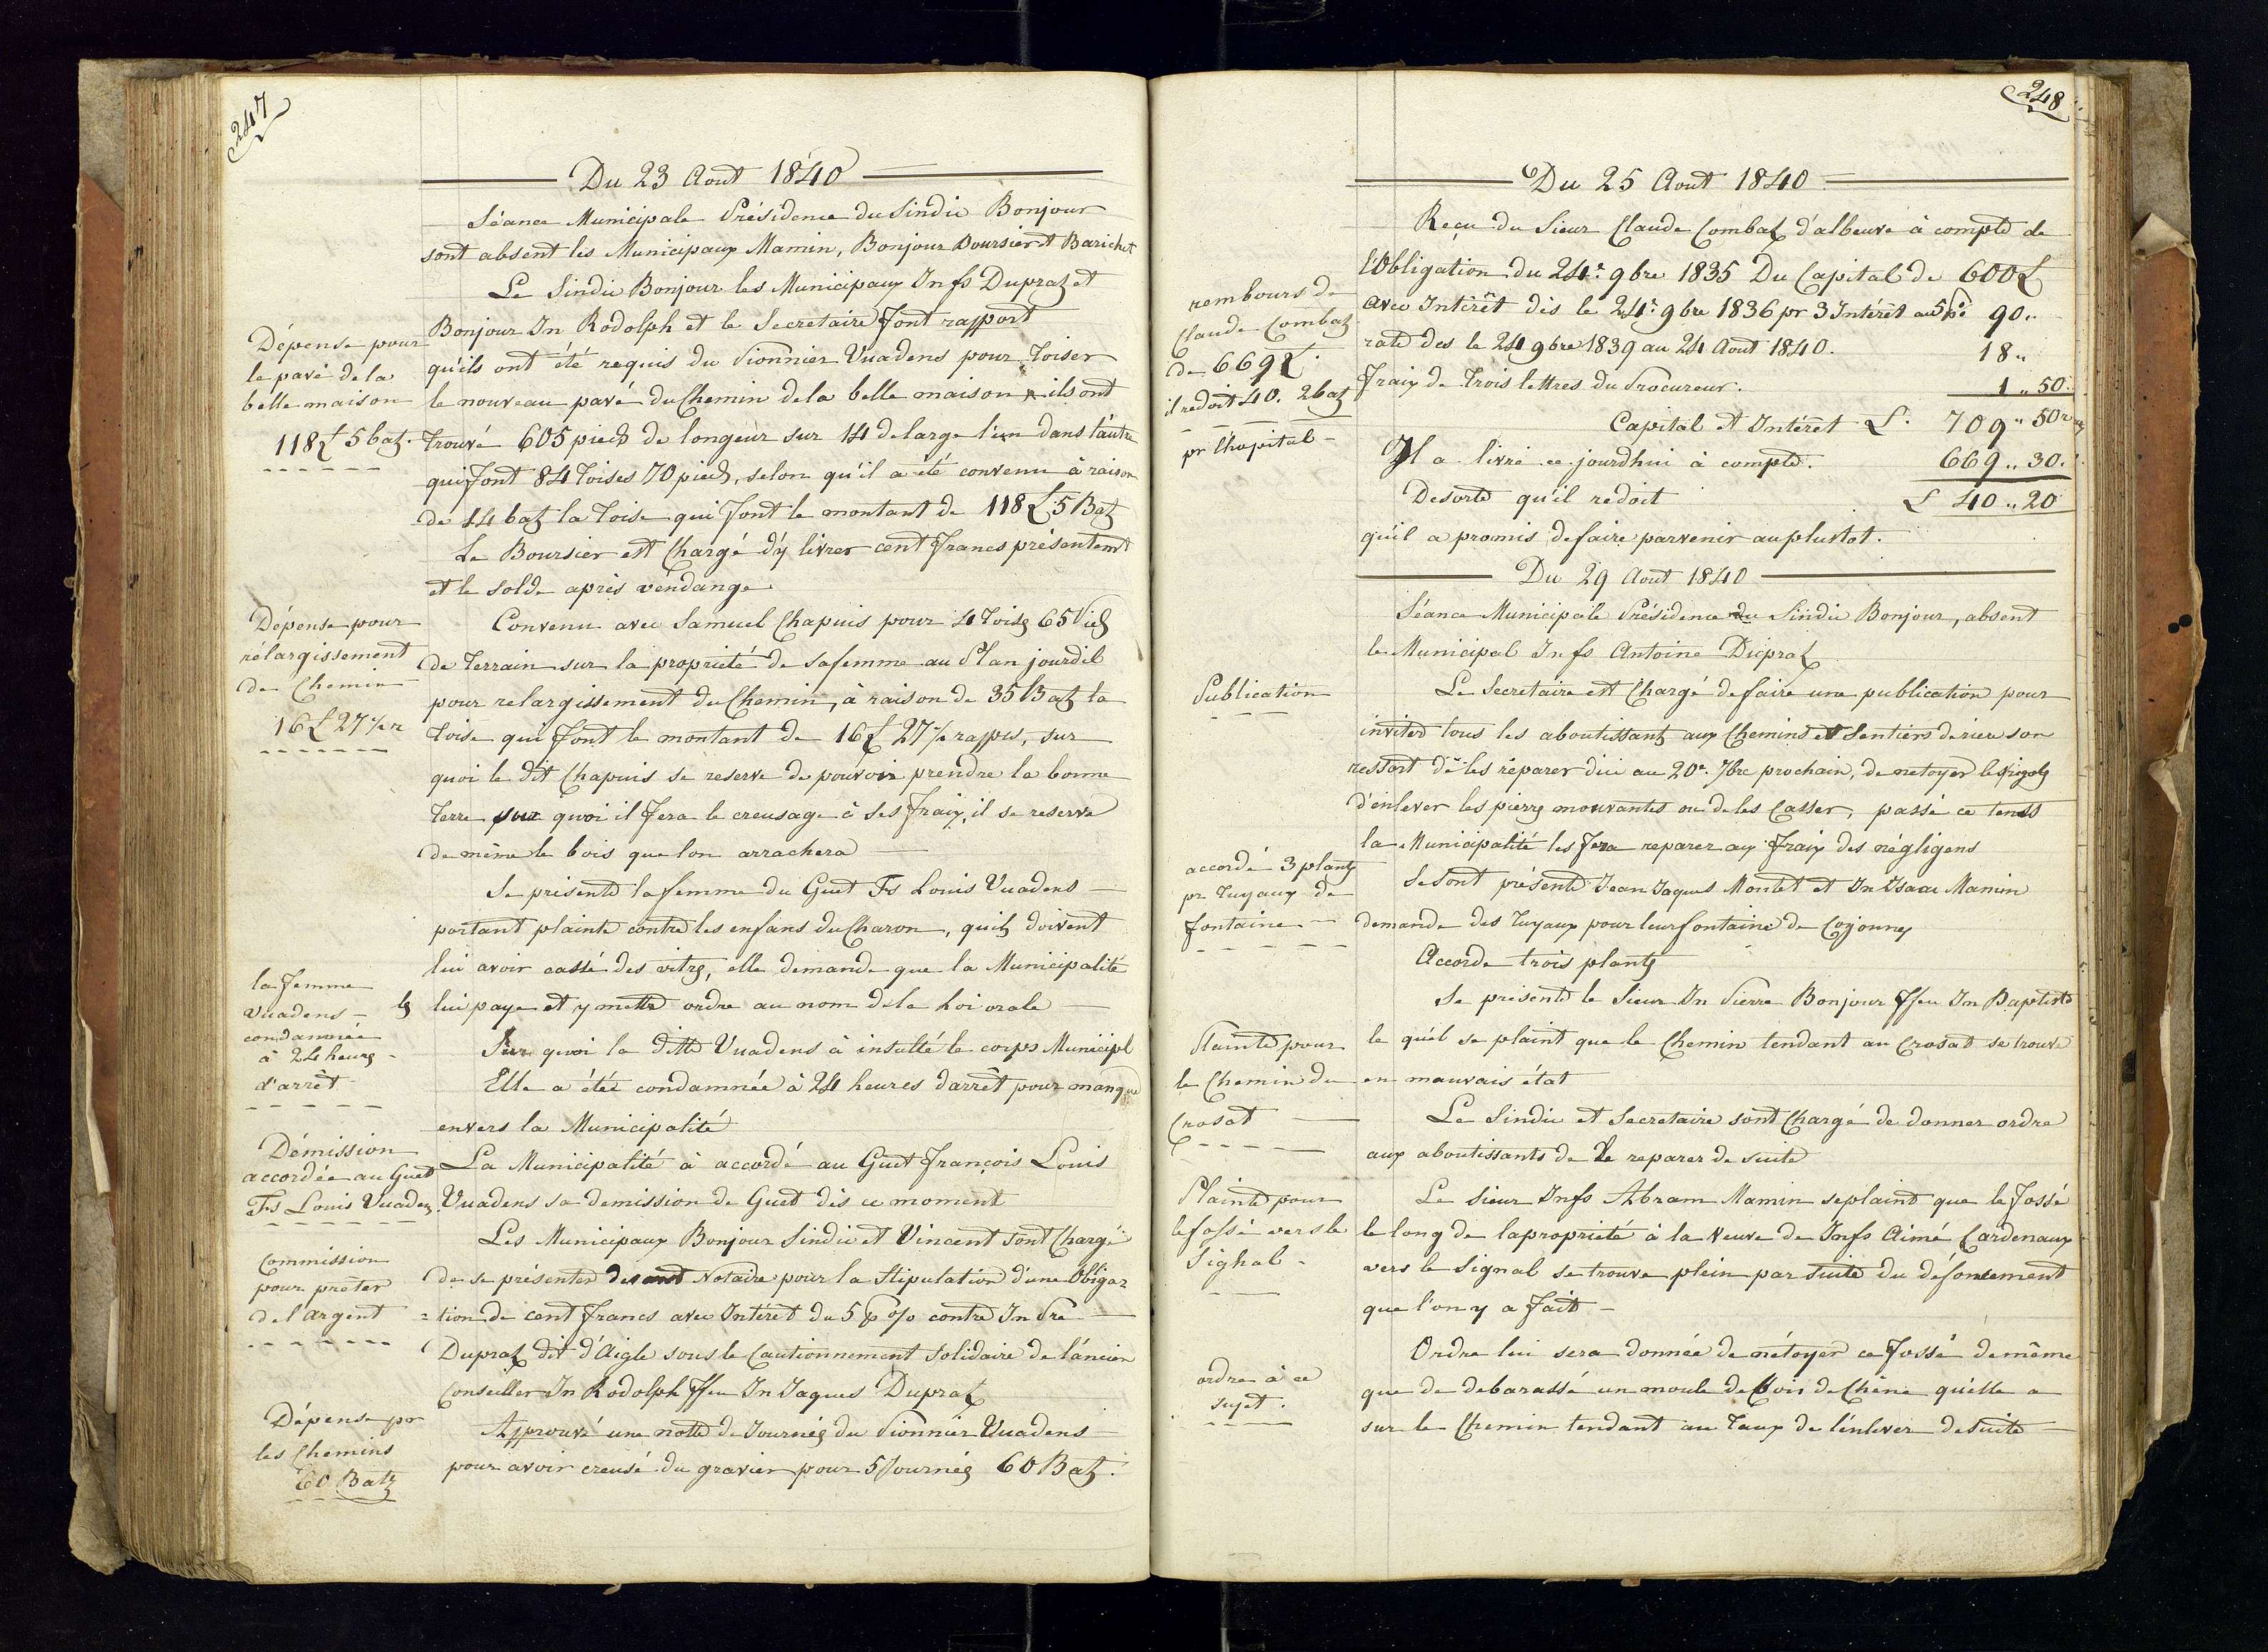 247
Du 23 Aout 1840
Séance Municipale Présidence du Sindic Bonjour
sont absent les Municipaux Mamin, Bonjour Boursier et Barichet
Le Sindic Bonjour les Municipaux Jn fs Dupraz et
Bonjour Jn Rodolph et le Secretaire font rapport
Dépense pour
le pavé de la
belle maison
118 £ 5 batz.
qu'ils ont été requis du Pionnier Vuadens pour Toiser
le nouveau pavé du Chemin de la belle maison & ils ont
trouvé 605 pieds de longeur sur 14 de large l'un dans l'autre
qui font 84 Toises 70 pieds, selon qu'il a été convenu à raison
de 14 batz la Toise qui font le montant de 118 £ 5 Batz
Le Boursier est Chargé d'y livrer cent francs présentemt
et le solde après vendange
Dépense pour
rélargissement
de Chemin
16 £ 27 ½ r
Convenu avec Samuel Chapuis pour 4 Toises 65 Pieds
de Terrain sur la propriété de sa femme au Plan jourdil
pour relargissement du Chemin, à raison de 35 Batz la
Toise qui font le montant de 16 £ 27 ½ rappes, sur
quoi le dit Chapuis se reserve de pouvoir prendre la bonne
Terre sur quoi il fera le creusage à ses fraix, il se reserve
de même le bois que lon arrachera
Se présente la femme du Guet Fs Louis Vuadens
portant plainte contre les enfans du Charon, quils doivent
lui avoir cassé des vitres, elle demande que la Municipalité
la femme
Vuadens
condamnée
à 24 heures
d'arrêt
les lui paye et y mette ordre au nom de la Loi orale
Sur quoi la ditte Vuadens à insulté le corps Municipl
Elle a étée condamnée à 24 heures d'arrêt pour manque
envers la Municipalité
Démission
accordée au Guet
Fs Louis Vuadens
La Municipalité à accordé au Guet François Louis
Vuadens sa demission de Guet dès ce moment
Commission
pour prêter
de l'argent
Les Municipaux Bonjour Sindic et Vincent sont Chargé
de se présenter devant Notaire pour la Stipulation d'une Obliga=
=tion de cent francs avec Intéret du 5 p % contre Jn Pre
Dupraz dit d'Aigle sous le Cautionnement Solidaire de l'ancien
Conseiller Jn Rodolph ffeu Jn Jaques Dupraz
Dépense pr
les Chemins
60 Batz
Approuvé une notte de Journées du Pionnier Vuadens
pour avoir creusé du gravier pour 5 Journées 60 Batz.
248
Du 25 Aout 1840
Reçu du Sieur Claude Combaz d'albeuve à compte de
rembours de
Claude Combaz
de 669 £.
il redoit 40. 2 batz
pr l'hopital
l'Obligation du 24e. 9bre 1835 Du Capital de 600 £
avec Intérêt dès le 24e. 9bre 1836 pr 3 Intérêt au 5 p% 90 "
rate des le 24 9bre 1839 au 24 Aout 1840. 18 "
fraix de Trois lettres du Procureur. 1 " 50.
Capital et Intéret £. 709 " 50 r
Il a livré ce jourdhui à compte. 669 " 30.
Desorte qu'il redoit £ 40 " 20
qu'il a promis de faire parvenir au plustot.
Du 29 Aout 1840
Séance Municipale Présidence du Sindic Bonjour, absent
le Municipal Jn fs Antoine Dupraz
Publication
Le Secretaire est Chargé de faire une publication pour
inviter tous les aboutissants aux Chemins et Sentiers de rière son
ressort de les réparer d'ici au 20e. 7bre prochain, de netoyer les rigoles
d'enlever les pierres mouvantes ou de les Casser, passé ce tems
la Municipalité les fera reparer aux fraix des négligens
accordé 3 plantes
pr Tuyaux de
fontaine
Se sont présenté Jean Jaques Montet et Jn Isaac Mamin
demande des Tuyaux pour leur fontaine de Cojonney
Accorde trois plantes
Se présente le Sieur Jn Pierre Bonjour ffeu Jn Baptiste
Plainte pour
le Chemin du
Crosat
le quél se plaint que le Chemin tendant au Crosat se trouve
en mauvais état
Le Sindic et Secretaire sont Chargé de donner ordre
aux aboutissants de le reparer de suite
Plainte pour
le fossé vers le
Sighal
Le Sieur Jn fs Abram Mamin se plaint que le fossé
le long de la propriété à la Veuve de Jn fs Aimé Cardenaux
vers le Signal se trouve plein par suite du défoncement
que l'on y a fait
ordre à ce
sujet.
Ordre lui sera donnée de nétoyer ce fossé de même
que de debarassé un moule de bois de Chêne qu'elle a
sur le Chemin tendant au Taux de l'enlever de suite